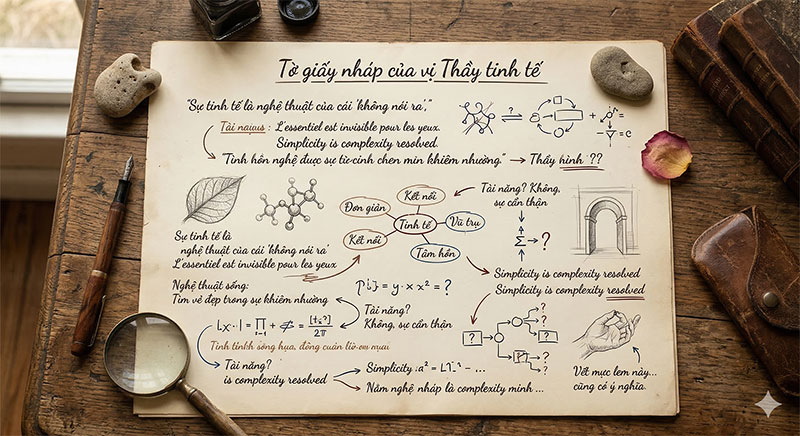 Tờ giấy nháp của vị Thầy tinh tế
"Sự tinh tế là nghệ thuật của cái 'không nói ra',"
Tài nauus : L'essentiel est invisible pour les yeux.
Simplicity is complexity resolved.
"Tình hôn nghệ được sự từ-cinh chen mịn khiêm nhường." → Thầy hình ??
Đơn giản
Kết nối
Tinh tế
Vũ trụ
Kết nối
Tâm hồn
Tài năng? Không,
sự cẩn thận
Σ → ?
Sự tinh tế là
nghệ thuật của cái 'không nói ra'
L'essentiel est invisible pour les yeux
Simplicity is complexity resolved
Simplicity is complexity resolved
Nghệ thuật sống:
Tìm vẻ đẹp trong sự khiêm nhường
Tài năng?
Không, sự cẩn thận
Tài năng?
is complexity resolved
Năm nghệ nháp là complexity minh ...
Vết mực lem này...
cũng có ý nghĩa.